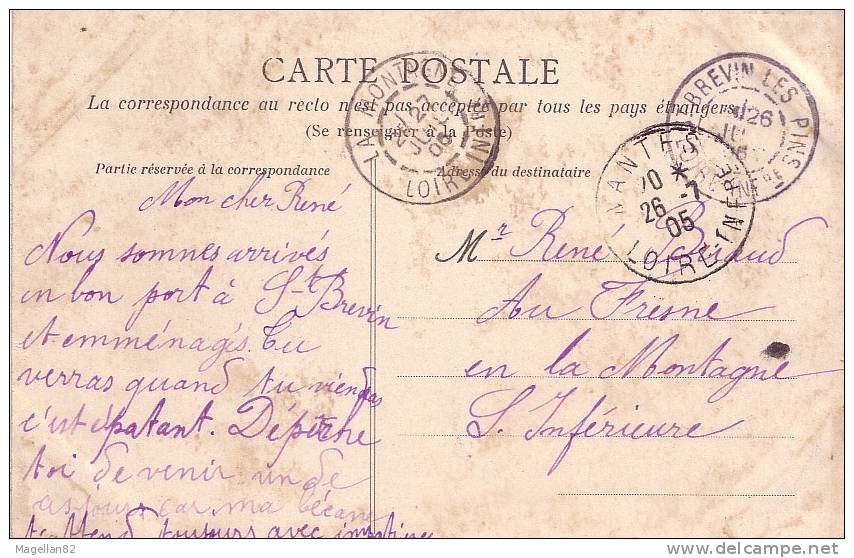 CARTE POSTALE
La correspondance au recto n'est pas acceptée par tous les pays étrangers
(Se renseigner à la Poste)
Partie réservée à la correspondance
Adresse du destinataire
LA MONTAGNE
LOIRE INFRE
ST BREVIN LES PINS
NANTES
26 -7
05
LOIRE INFRE
Mon cher René
Nous sommes arrivés
en bon port à St Brevin
et emménagés. Tu
verras quand tu viendas
c'est épatant. Dépêche
toi de venir un de
ces jours car ma bécane
t'attend toujours avec
Mr René
Au Fresne
en la Montagne
L. Inférieure
Magellan82
delcampe.net